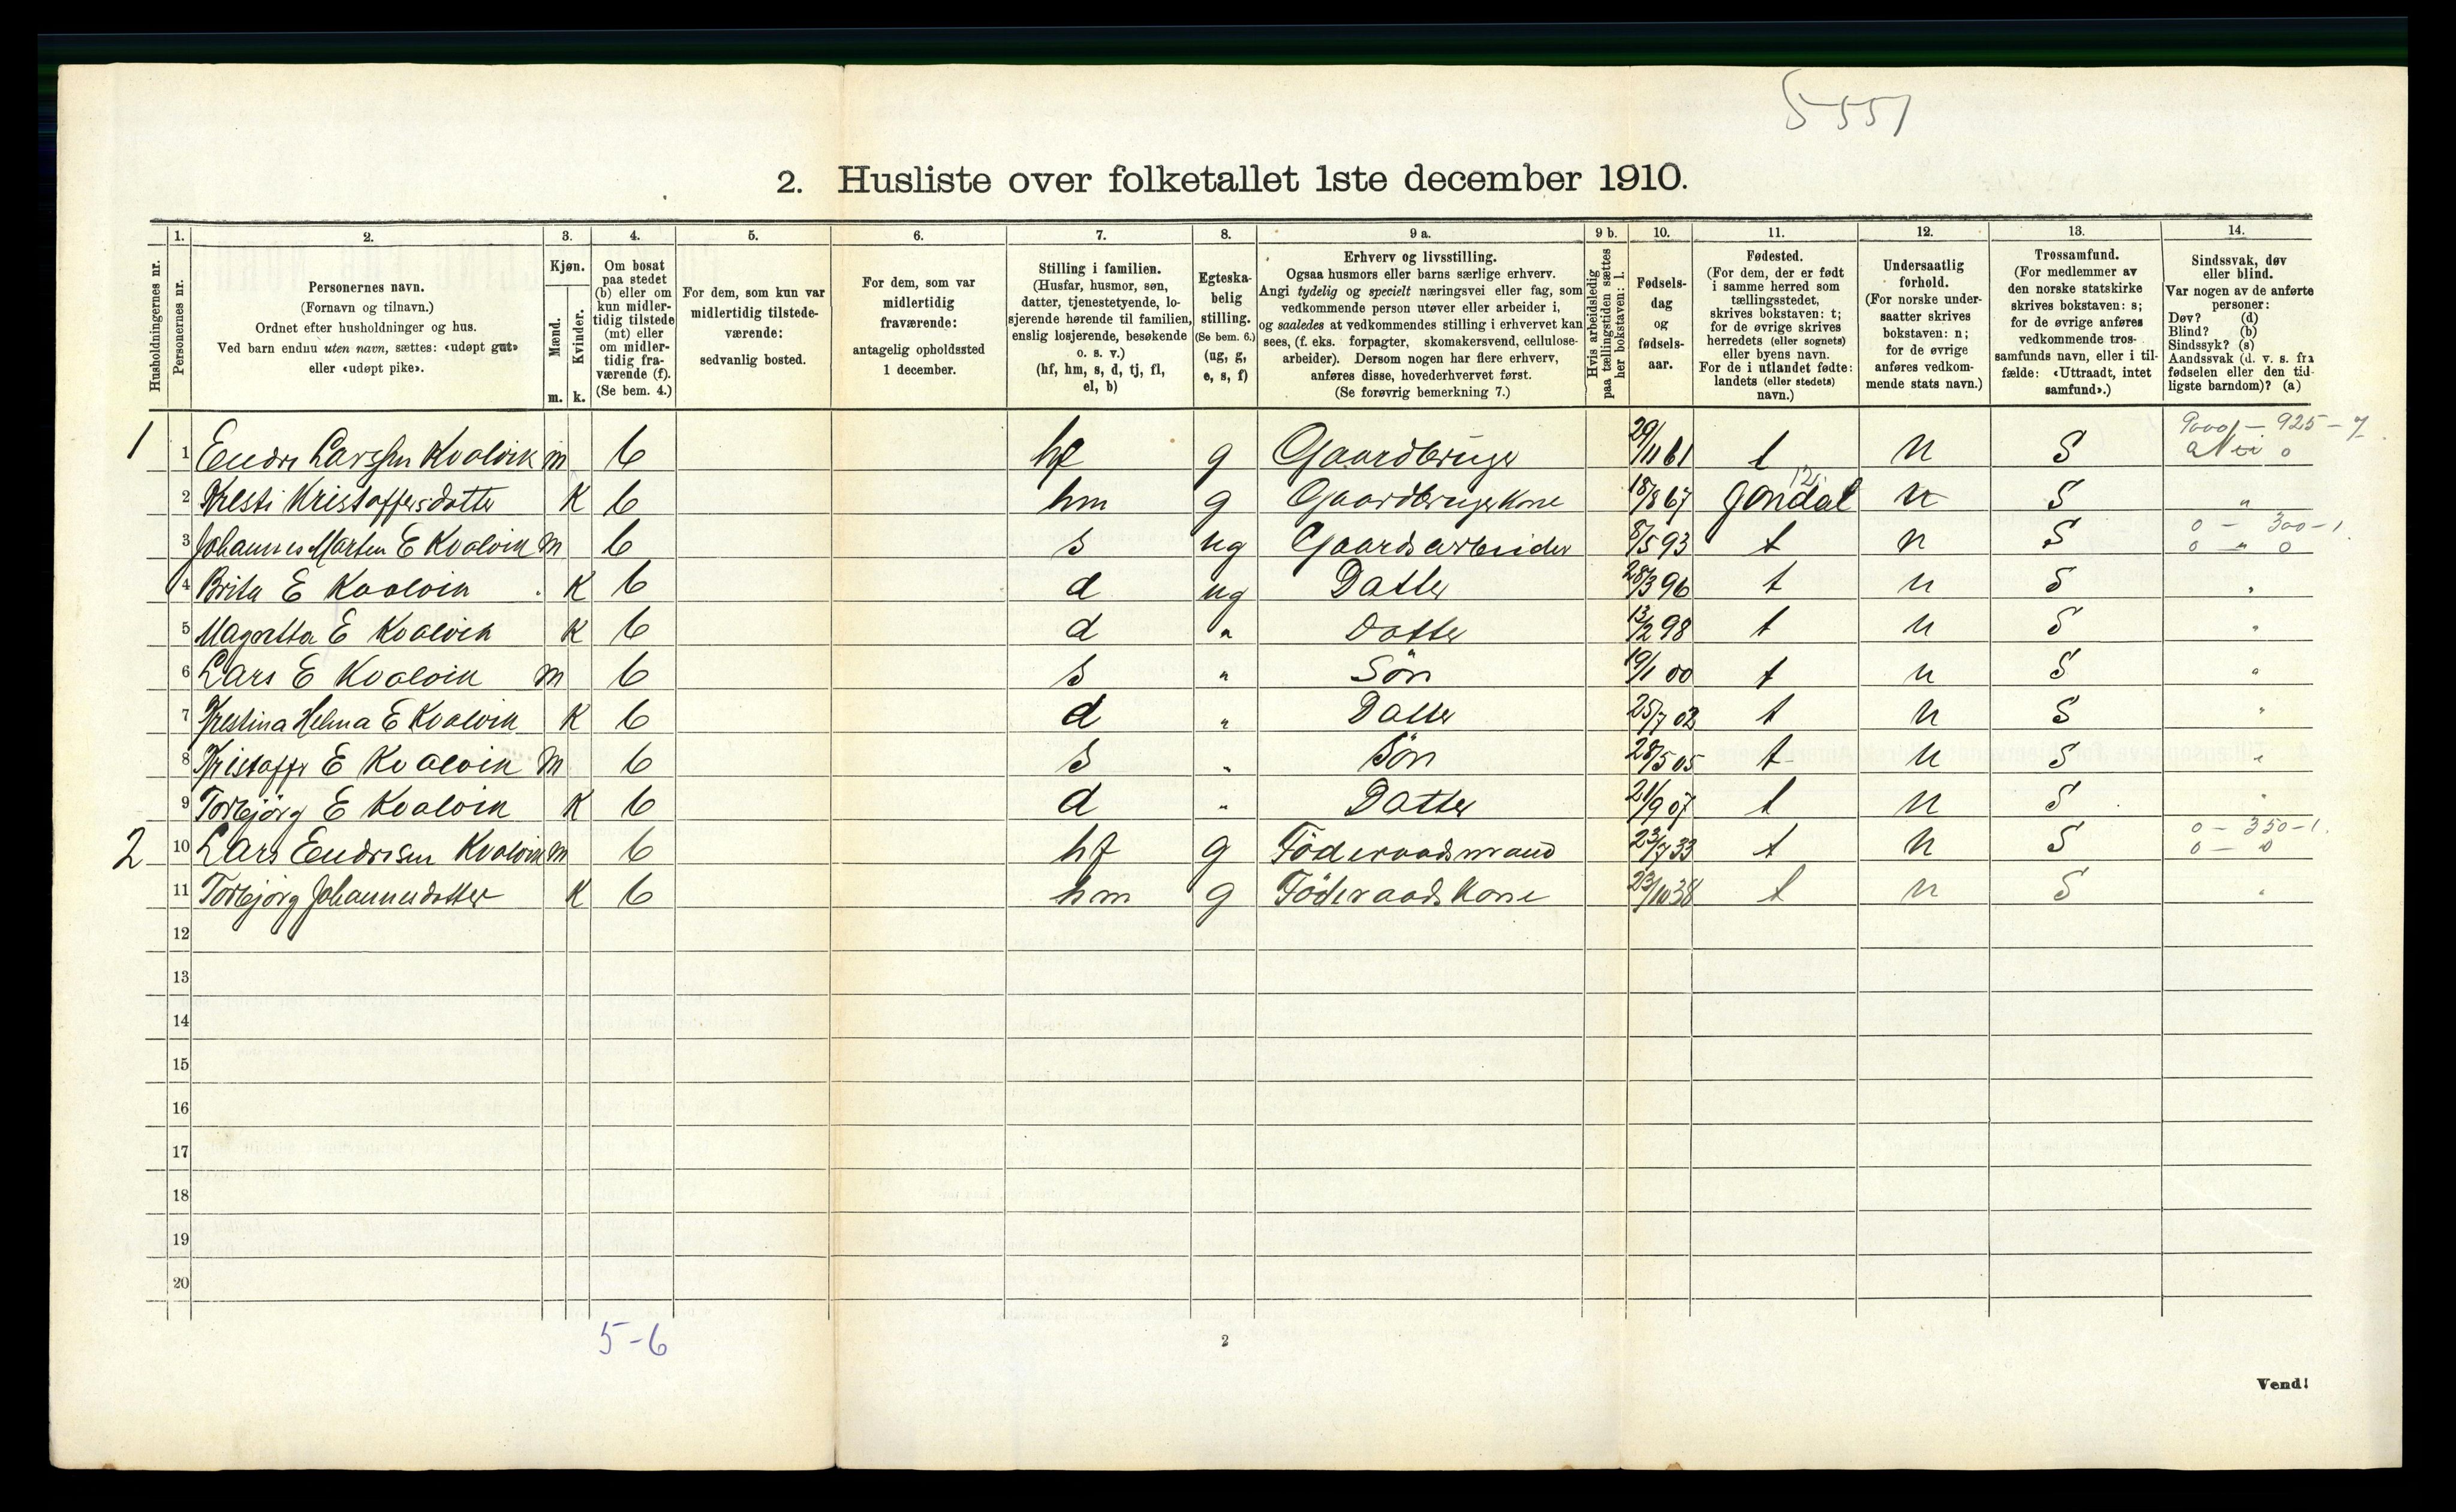 5551
2. Husliste over folketallet 1ste december 1910.
Husholdningernes nr.
1. Personernes nr.
2. Personernes navn.
(Fornavn og tilnavn.)
Ordnet efter husholdninger og hus.
Ved barn endnu uten navn, sættes: «udøpt gut»
eller «udøpt pike».
3. Kjøn.
Mænd. m.
Kvinder. k.
4. Om bosat
paa stedet
(b) eller om
kun midler-
tidig tilstede
(mt) eller
om midler-
tidig fra-
værende (f).
(Se bem. 4.)
5. For dem, som kun var
midlertidig tilstede-
værende:
sedvanlig bosted.
6. For dem, som var
midlertidig
fraværende:
antagelig opholdssted
1 december.
7. Stilling i familien.
(Husfar, husmor, søn,
datter, tjenestetyende, lo-
sjerende hørende til familien,
enslig losjerende, besøkende
o. s. v.)
(hf, hm, s, d, tj, fl,
el, b)
8. Egteska-
belig
stilling.
(Se bem. 6.)
(ug, g,
e, s, f)
9 a. Erhverv og livsstilling.
Ogsaa husmors eller barns særlige erhverv.
Angi tydelig og specielt næringsvei eller fag, som
vedkommende person utøver eller arbeider i,
og saaledes at vedkommendes stilling i erhvervet kan
sees, (f. eks. forpagter, skomakersvend, cellulose-
arbeider). Dersom nogen har flere erhverv,
anføres disse, hovederhvervet først.
(Se forøvrig bemerkning 7.)
9 b. Hvis arbeidsledig
paa tællingstiden sættes
her bokstaven: l.
10. Fødsels-
dag
og
fødsels-
aar.
11. Fødested.
(For dem, der er født
i samme herred som
tællingsstedet,
skrives bokstaven: t;
for de øvrige skrives
herredets (eller sognets)
eller byens navn.
For de i utlandet fødte:
landets (eller stedets)
navn.)
12. Undersaatlig
forhold.
(For norske under-
saatter skrives
bokstaven: n;
for de øvrige
anføres vedkom-
mende stats navn.)
13. Trossamfund.
(For medlemmer av
den norske statskirke
skrives bokstaven: s;
for de øvrige anføres
vedkommende tros-
samfunds navn, eller i til-
fælde: «Uttraadt, intet
samfund».)
14. Sindssvak, døv
eller blind.
Var nogen av de anførte
personer:
Døv? (d)
Blind? (b)
Sindssyk? (s)
Aandssvak (d. v. s. fra
fødselen eller den tid-
ligste barndom)? (a)
9000 - 925 - 7
1 1 Endre Larssen Kvalvik m b hf g Gaardbruger 29/11 61 t n S Nei 0
12
2 Kresti Kristoffersdatter K b hm g Gaardbrugerkone 18/8 67 Jondal n S "
0 - 300 - 1.
3 Johannes Marten E Kvalvik m b s ug Gaardsarbeider 8/5 93 t n S 0 " 0
4 Brita E Kvalvik K b d ug Datter 28/3 96 t n S "
5 Magretta E Kvalvik K b d " Datter 13/2 98 t n S "
6 Lars E Kvalvik m b s " Søn 19/1 00 t n S "
7 Krestina Helena E Kvalvik K b d " Datter 25/7 02 t n S "
8 Kristoffer E Kvalvik m b s " Søn 28/5 05 t n S "
9 Torbjörg E Kvalvik K b d " Datter 21/9 07 t n S "
0 - 350 - 1.
2 10 Lars Endresen Kvalvik m b hf g Föderaadsmand 23/7 33 t n S 0 - 0
11 Torbjörg Johannesdatter K b hm g Föderaadskone 23/10 38 t n S "
12
13
14
15
16
17
18
19
20
5-6
2
Vend!